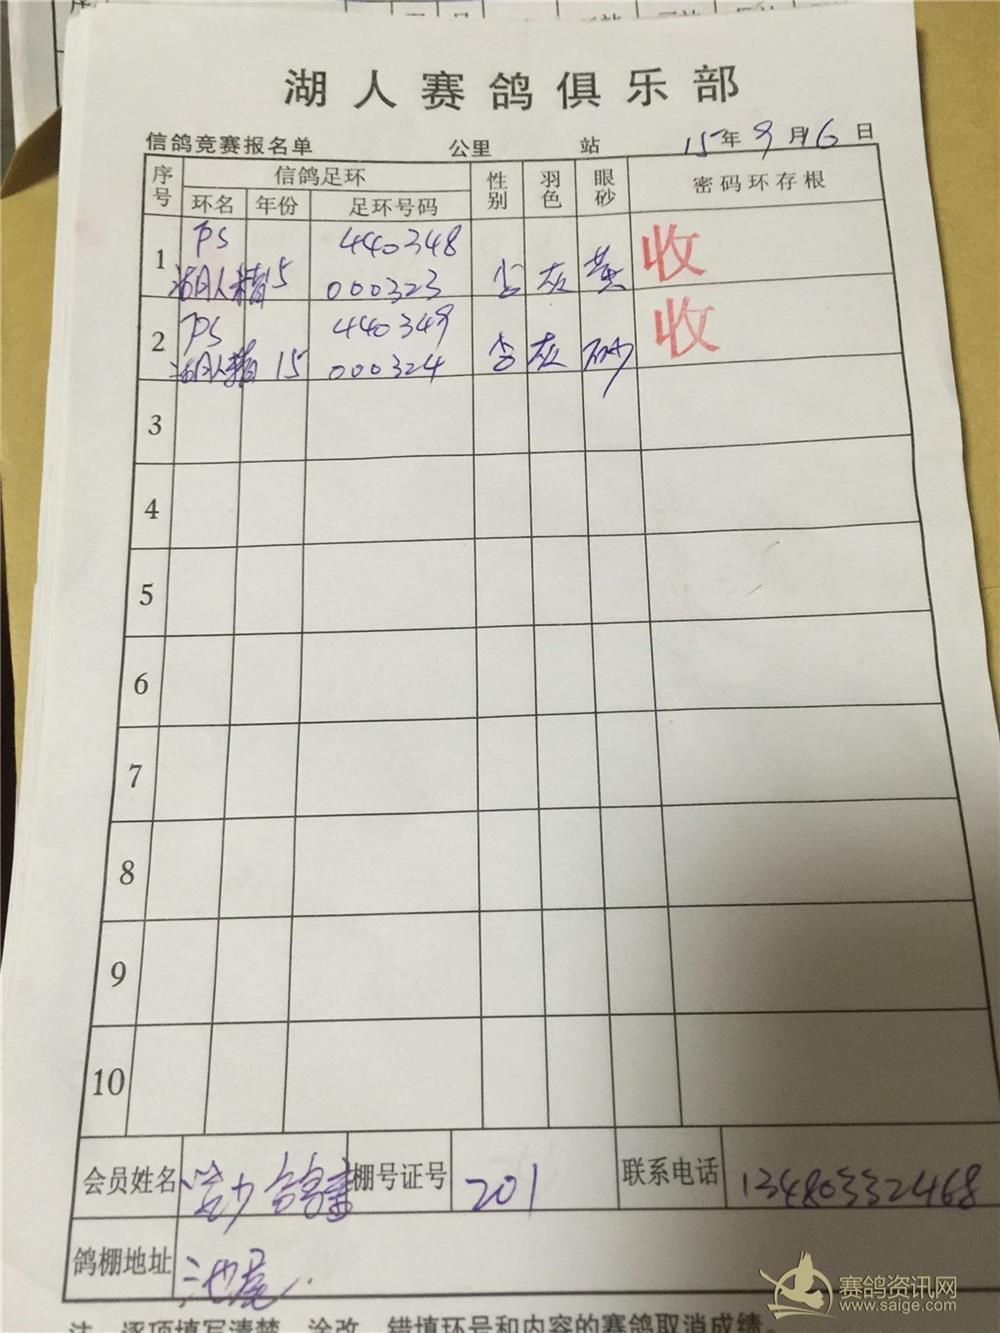 湖人赛鸽俱乐部
信鸽竞赛报名单 公里 站 15年9月16日
序号 信鸽足环 性别 羽色 眼砂 密码环存根
环名 年份 足环号码
1 PS 440348 收
湖人精 15 000323 灰 黄
2 PS 440349 收
湖人精 15 000324 灰 砂
3
4
5
6
7
8
9
10
会员姓名 鸽舍 棚号证号 201 联系电话 13480332468
鸽棚地址 池尾
注 逐项填写清楚 涂改 错填环号和内容的赛鸽取消成绩。
赛鸽资讯网
www.saige.com